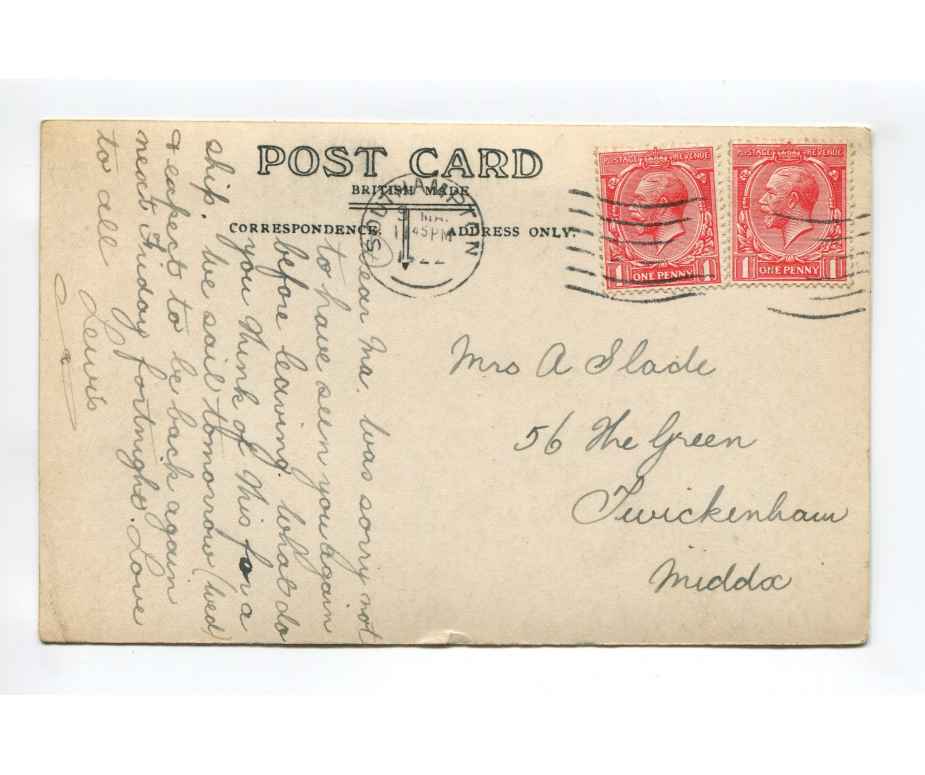 POST CARD
BRITISH MADE
CORRESPONDENCE.
ADDRESS ONLY.
SOUTHAMPTON
MA.
45 PM
22
POSTAGE REVENUE
ONE PENNY
1 1
POSTAGE REVENUE
ONE PENNY
1 1
Dear Ma. Was sorry not
to have seen you again
before leaving. What do
you think of this for a
ship. We sail tomorrow (Wed)
& expect to be back again
next Friday fortnight. Love
to all Lewis
x
Mrs A Slade
56 The Green
Twickenham
Middx